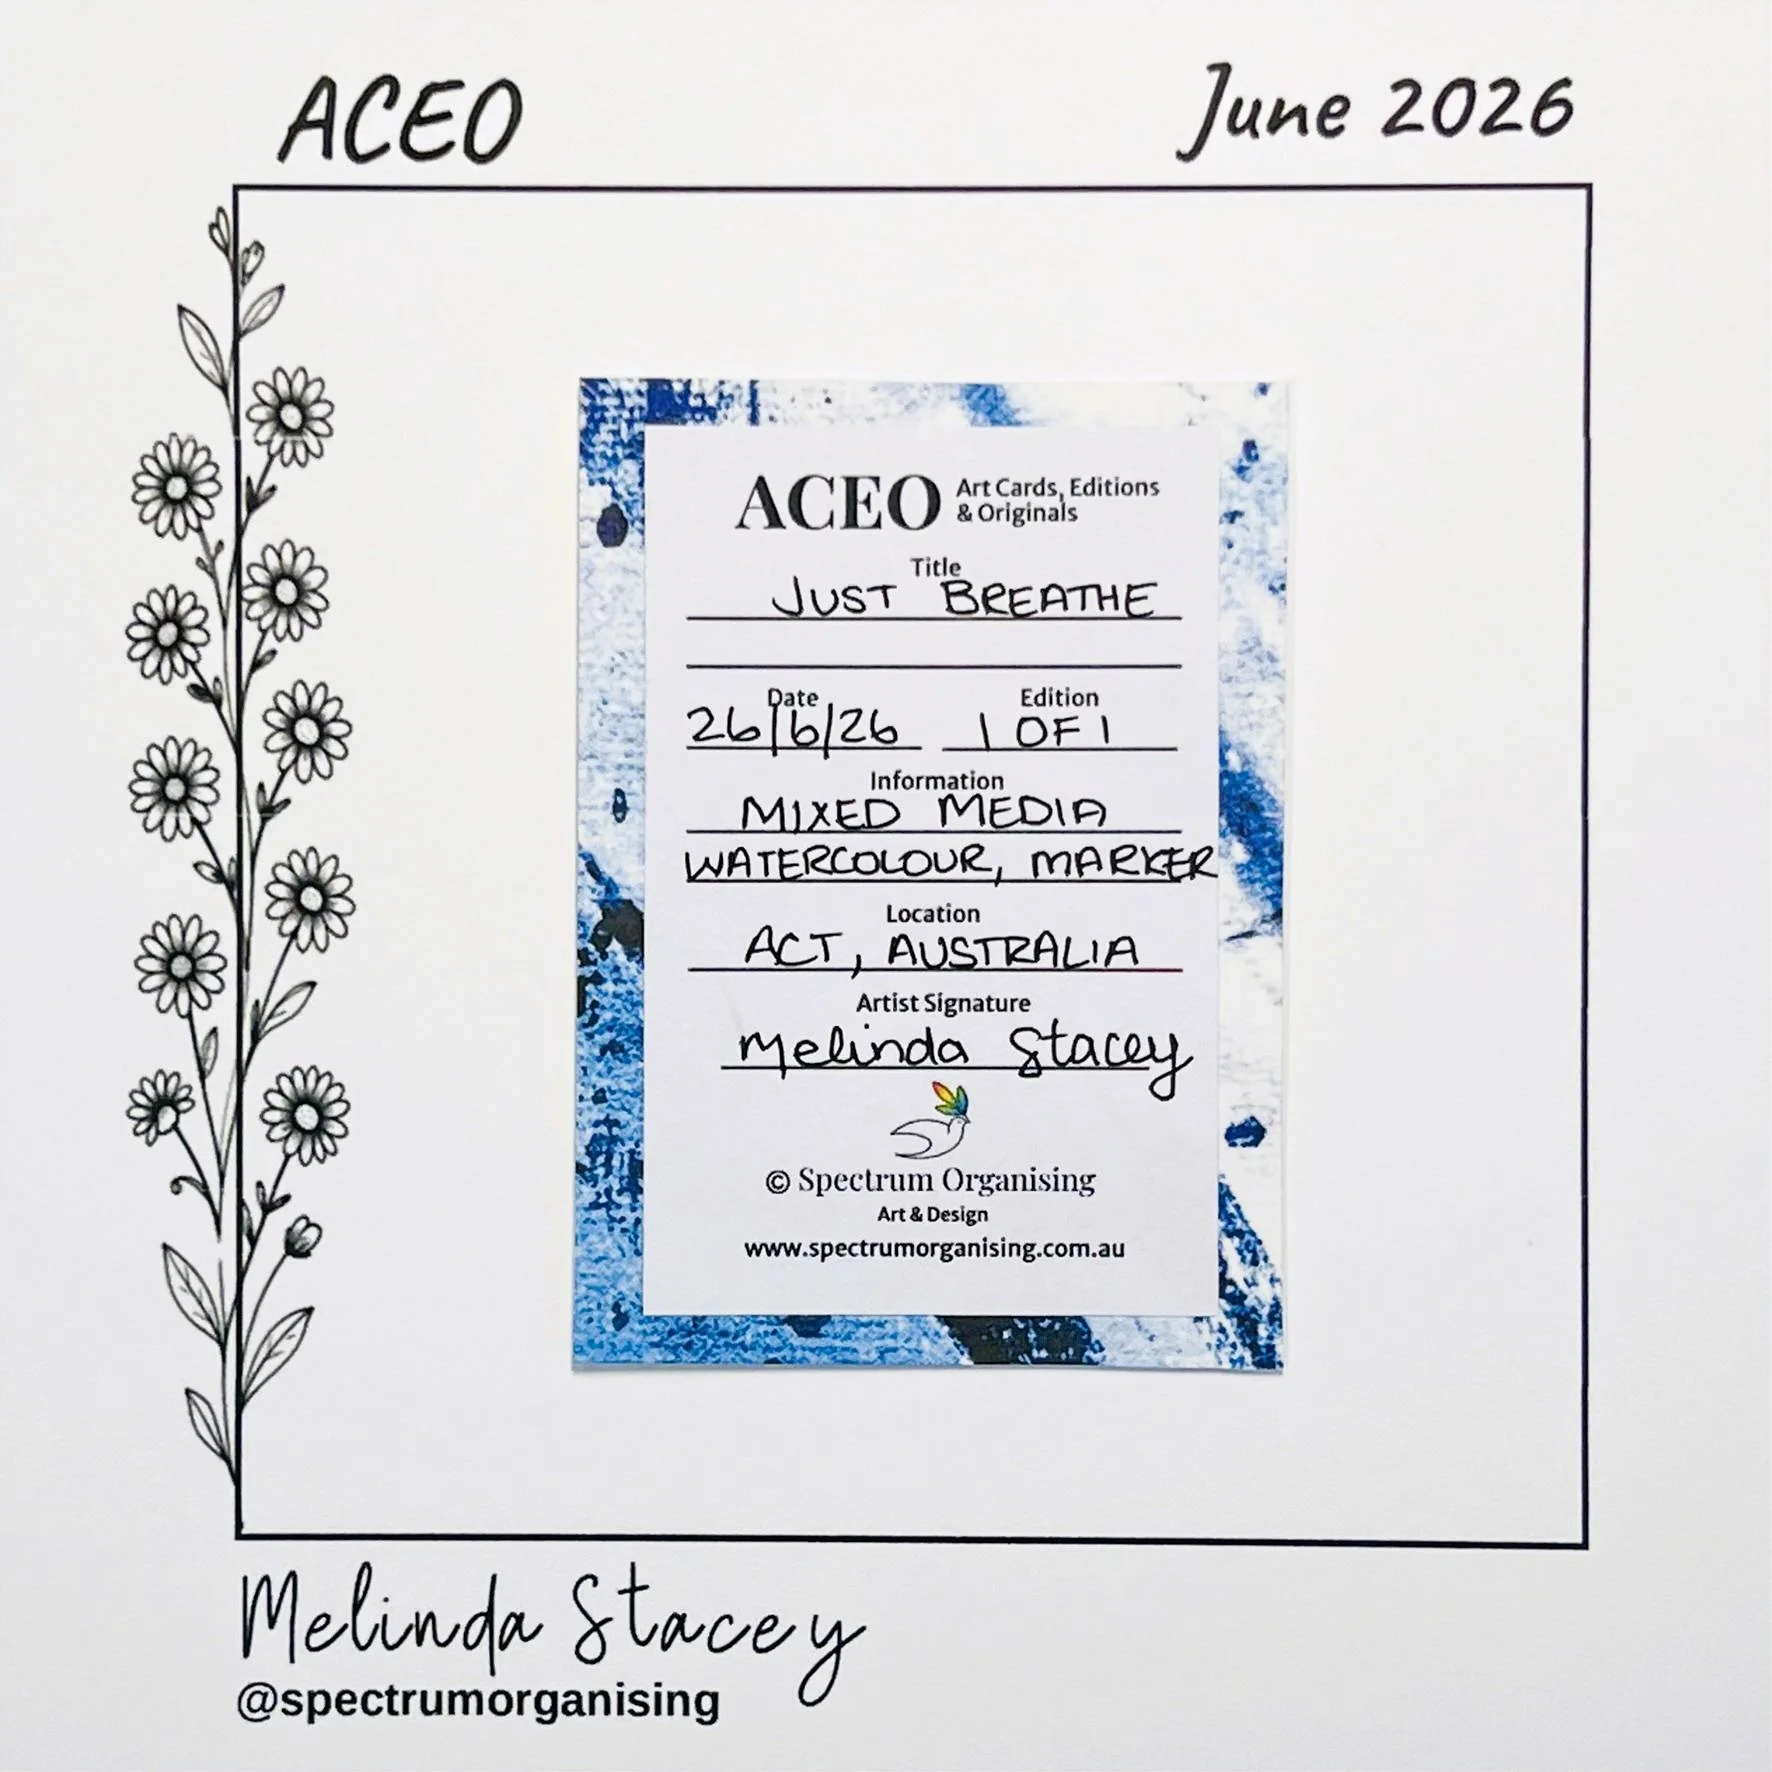 ACEO June 2026
ACEO Art Cards, Editions
& Originals
Title
JUST BREATHE
Date Edition
26/6/26 1 OF 1
Information
MIXED MEDIA
WATERCOLOUR, MARKER
Location
ACT, AUSTRALIA
Artist Signature
Melinda Stacey
© Spectrum Organising
Art & Design
www.spectrumorganising.com.au
Melinda Stacey
@spectrumorganising